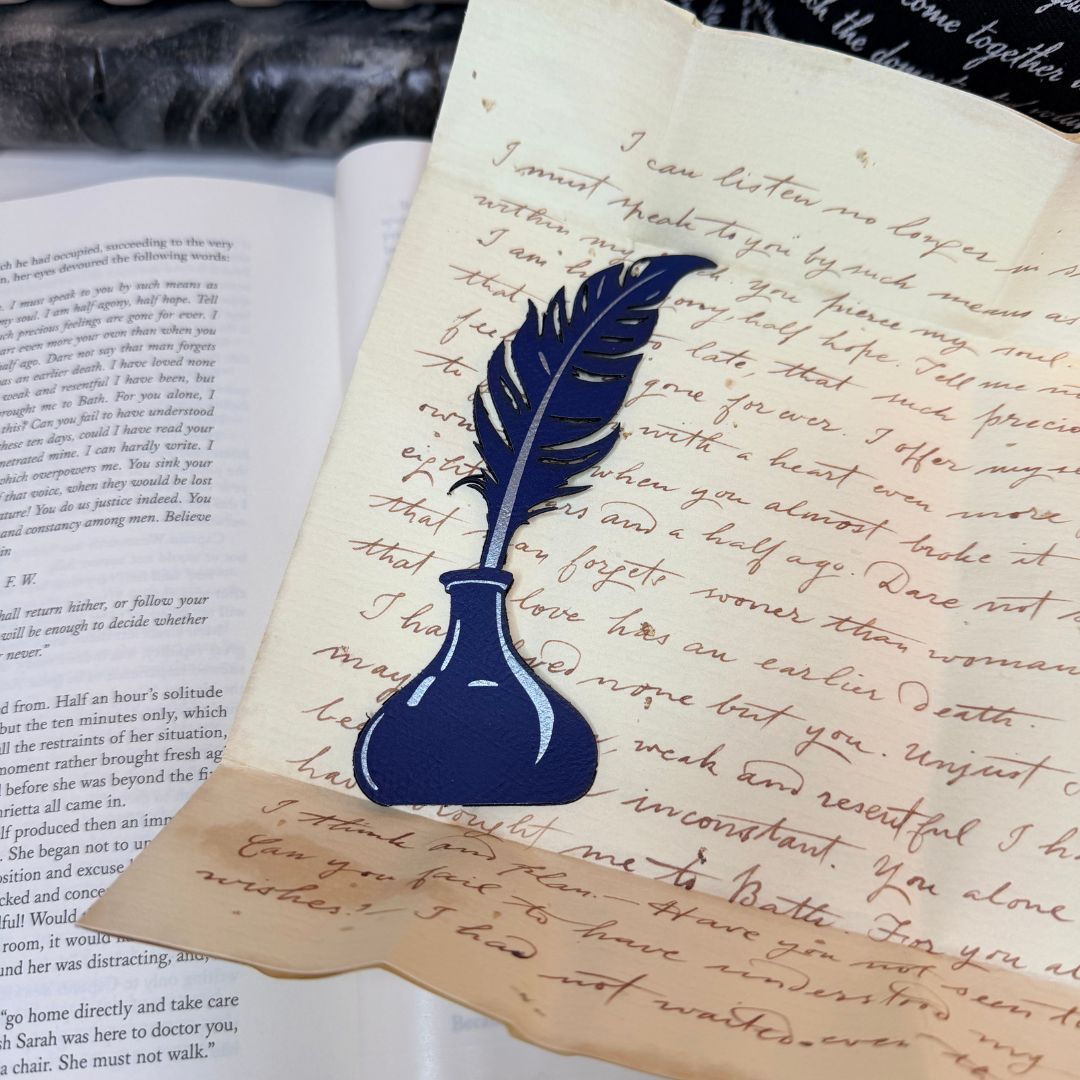 ch he had occupied, succeeding to the very
n, her eyes devoured the following words:
I must speak to you by such means as
my soul. I am half agony, half hope. Tell
ch precious feelings are gone for ever. I
art even more your own than when you
half ago. Dare not say that man forgets
as an earlier death. I have loved none
weak and resentful I have been, but
rought me to Bath. For you alone, I
this? Can you fail to have understood
these ten days, could I have read your
netrated mine. I can hardly write. I
which overpowers me. You sink your
f that voice, when they would be lost
ature! You do us justice indeed. You
and constancy among men. Believe
in
F. W.
hall return hither, or follow your
will be enough to decide whether
never.”
d from. Half an hour’s solitude
but the ten minutes only, which
ll the restraints of her situation,
moment rather brought fresh ag
before she was beyond the fi
nrietta all came in.
lf produced then an imm
. She began not to un
osition and excuse
cked and conce
lful! Would
room, it would
und her was distracting, and,
“go home directly and take care
sh Sarah was here to doctor you,
a chair. She must not walk.”
I can listen no longer in s
I must speak to you by such means as
within my You pierce my soul.
I am h ony, half hope. Tell me no
that late, that such precio
fee gone for ever. I offer myse
to with a heart even more
own when you almost broke it
eight ars and a half ago. Dare not s
that man forgets sooner than woman
that love has an earlier death.
I ha ved none but you. Unjust I
may weak and resentful I h
be inconstant. You alone
hav rought me to Bath. For you al
I think and plan. — Have you not seen t
Can you fail to have understood my
wishes? I had not waited even
come together
the dome